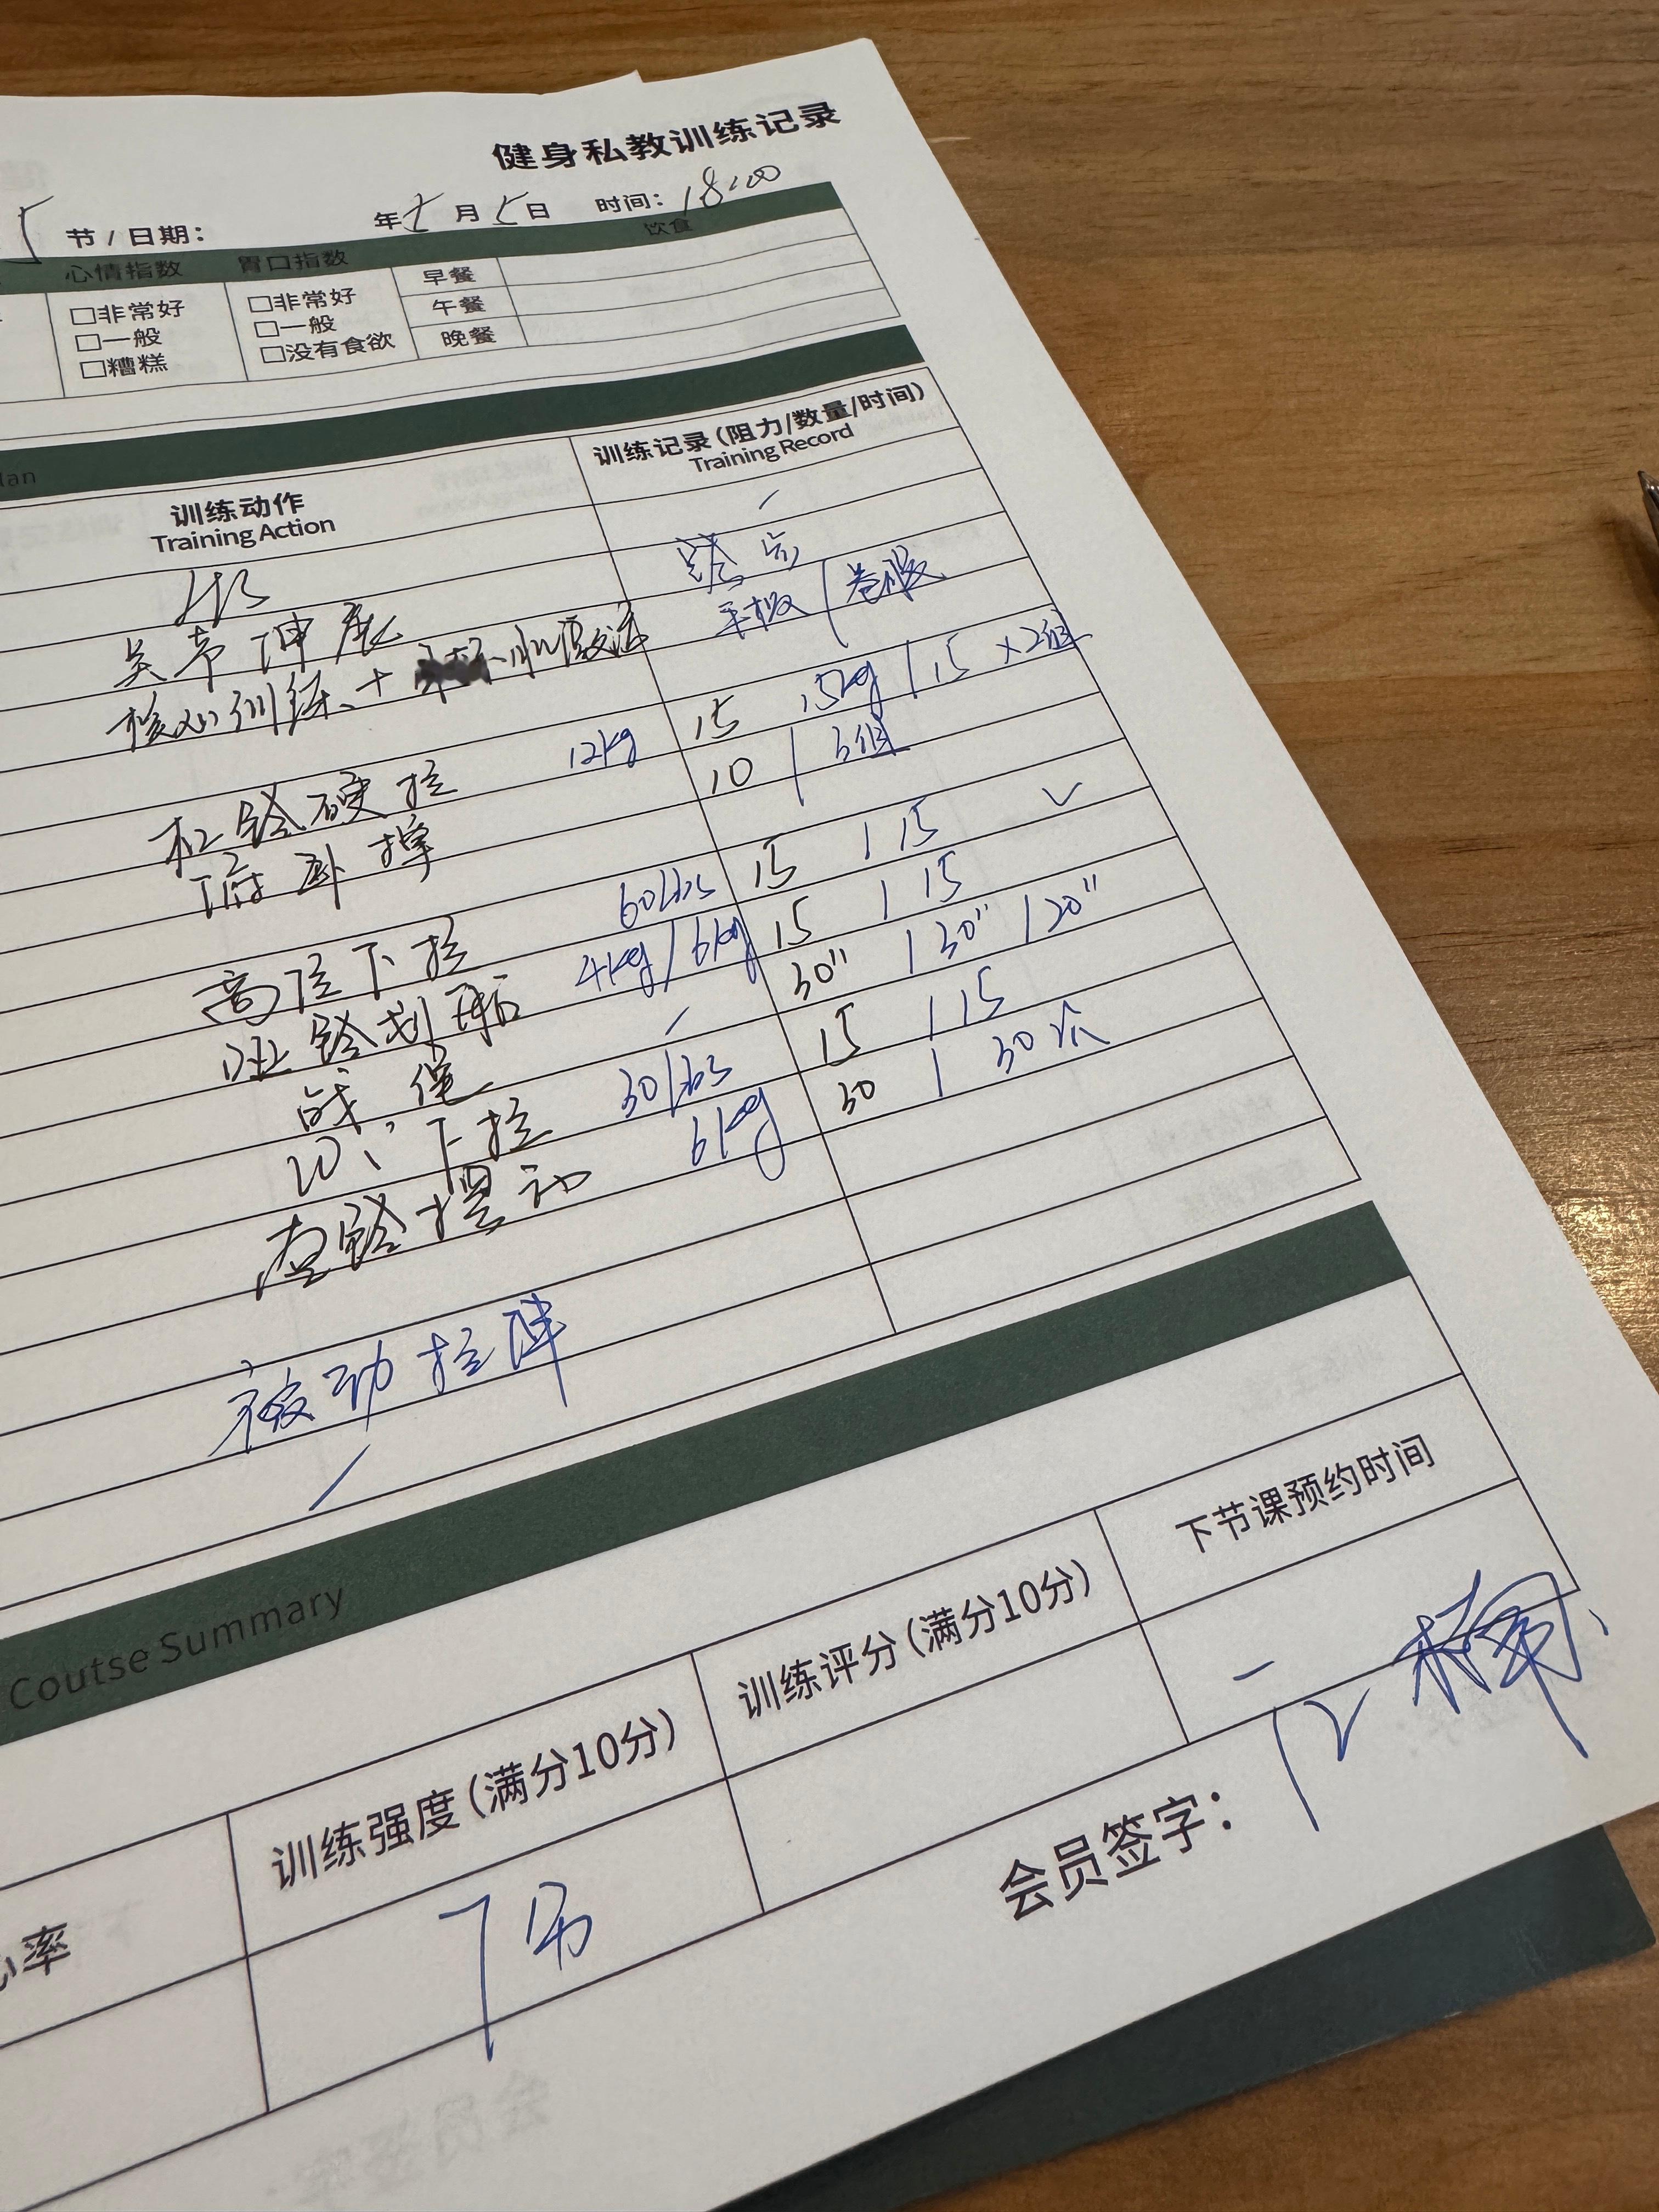 健身私教训练记录
5 节/日期: 年 七 月 5 日 时间: 18:00
心情指数 胃口指数 饮食
□非常好 □非常好 早餐
□一般 □一般 午餐
□糟糕 □没有食欲 晚餐
lan
训练动作 训练记录(阻力/数量/时间)
Training Action Training Record
关节伸展
核心训练 + 激活 平板 / 卷腹
杠铃硬拉 12kg 15 15kg / 15 ×2组
俯卧撑 10 / 3组
高位下拉 60lbs 15 / 15 ✓
哑铃划船 4kg/6kg 15 / 15
战绳 30" / 30" / 20"
下拉 30lbs 15 / 15
壶铃摆动 6kg 30 / 30个
被动拉伸
Coutse Summary
心率 训练强度(满分10分) 训练评分(满分10分) 下节课预约时间
7分
会员签字: